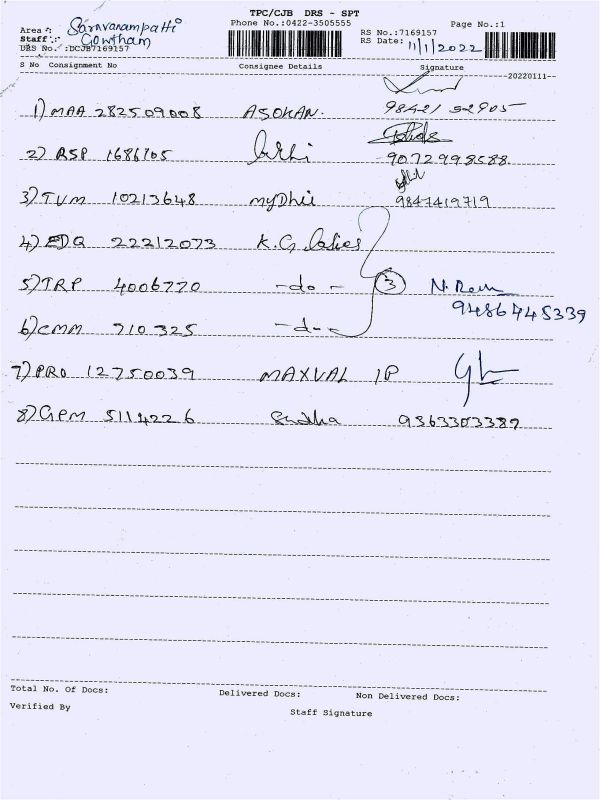 TPC/CJB DRS - SPT
Area : Saravanampatti
Phone No.:0422-3505555
Page No.:1
RS No.:7169157
Staff : Gowtham
RS Date: 11/1/2022
DRS No. :DCJB7169157
S No Consignment No Consignee Details Signature
20220111
1) MAA 282509008 ASOKAN. 98421 52905
2) RSP 1686705 9072998588
3) TVM 10213648 myDhii 9847419719
4) EDQ 22212073 K.G. ladies
5) TRP 4006770 -do- 3 N. Ram
9486445339
6) CMM 710325 -do-
7) PRO 12750039 MAXVAL IP
8) GPM 5114226 Sudha 9363303389
Total No. Of Docs: Delivered Docs: Non Delivered Docs:
Verified By Staff Signature